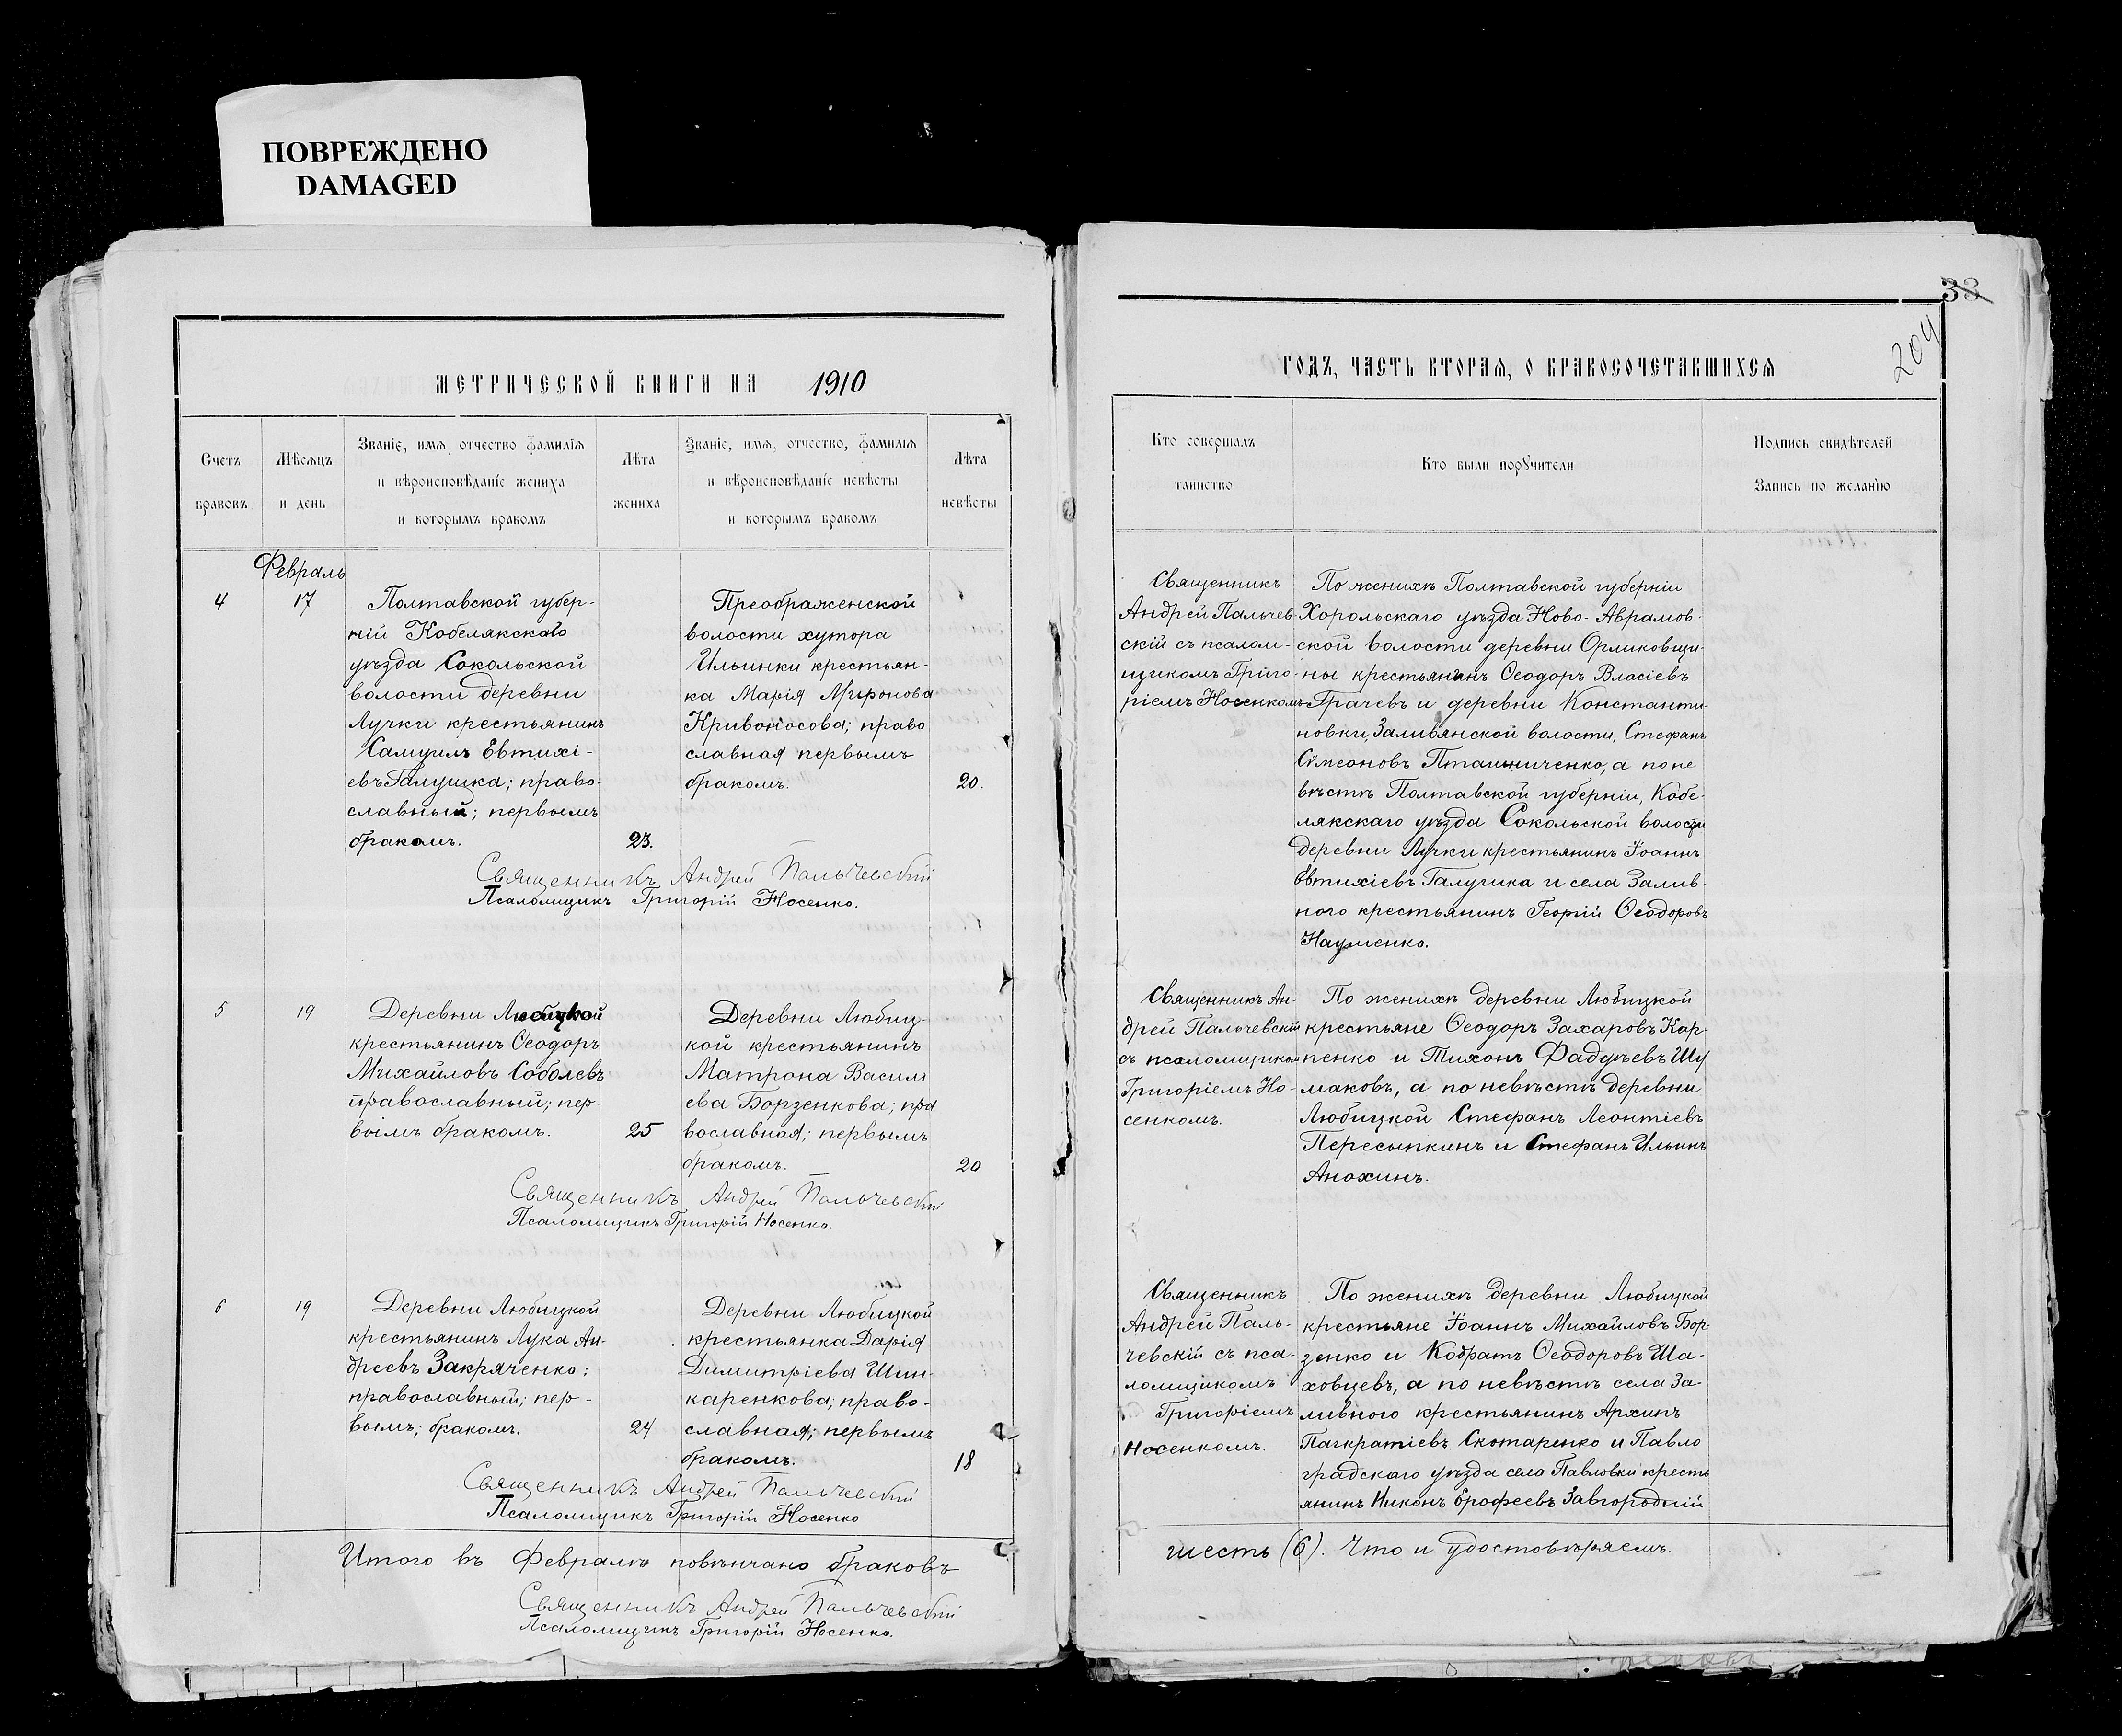 ПОВРЕЖДЕНО
DAMAGED
МЕТРИЧЕСКОЙ КНИГИ НА 1910
Счетъ
браковъ
Мѣсяцъ
и день
Званіе, имя, отчество фамилія
и вѣроисповѣданіе жениха
и которымъ бракомъ
Лѣта
жениха
Званіе, имя, отчество, фамилія
и вѣроисповѣданіе невѣсты
и которымъ бракомъ
Лѣта
невѣсты
Февраль
4
17
Полтавской губер-
ніи Кобелякскаго
уѣзда Сокольской
волости деревни
Лучки крестьянинъ
Самуилъ Евтихі-
евъ Галушка; право-
славный; первымъ
бракомъ.
23.
Преображенской
волости хутора
Ильинки крестьян-
ка Марія Миронова
Кривоносова; право
славная первымъ
бракомъ.
20.
Священникъ Андрей Пальчевскій
Псаломщикъ Григорій Носенко.
5
19
Деревни Любицкой
крестьянинъ Ѳеодоръ
Михайловъ Соболевъ
православный; пер-
вымъ бракомъ.
25
Деревни Любиц-
кой крестьянинъ
Матрона Васили
ева Борзенкова; пра
вославная; первымъ
бракомъ.
20
Священникъ Андрей Пальчевскій
Псаломщикъ Григорій Носенко.
6
19
Деревни Любицкой
крестьянинъ Лука Ан-
дреевъ Закряченко;
православный; пер-
вымъ; бракомъ.
24
Деревни Любицкой
крестьянка Дарія
Димитріева Шин-
каренкова; право-
славная; первымъ
бракомъ.
18
Священникъ Андрей Пальчевскій
Псаломщикъ Григорій Носенко
Итого въ Февралѣ повѣнчано браковъ
Священникъ Андрей Пальчевскій
Псаломщикъ Григорій Носенко.
33
204
ГОДЪ, ЧАСТЬ ВТОРАЯ, О БРАКОСОЧЕТАВШИХСЯ
Кто совершалъ
таинство
Кто были поручители
Подпись свидѣтелей
Запись по желанію
Священникъ
Андрей Пальчев-
скій съ псалом-
щикомъ Григо-
ріемъ Носенкомъ
По женихѣ Полтавской губерніи
Хорольскаго уѣзда Ново-Аврамов-
ской волости деревни Орликовщи-
ны крестьянинъ Ѳеодоръ Власіевъ
Грачевъ и деревни Константи-
новки, Заливянской волости, Стефанъ
Сѵмеоновъ Пташниченко, а по не
вѣстѣ Полтавской губерніи, Кобе-
лякскаго уѣзда Сокольской волости
деревни Лучки крестьянинъ Іоаннъ
Евтихіевъ Галушка и села Залив-
ного крестьянинъ Георгій Ѳеодоровъ
Науменко.
Священникъ Ан-
дрей Пальчевскій
съ псаломщикомъ
Григоріемъ Но-
сенкомъ.
По женихѣ деревни Любицкой
крестьяне Ѳеодоръ Захаровъ Кар-
пенко и Тихонъ Фадѣевъ Шу
маковъ, а по невѣстѣ деревни
Любицкой Стефанъ Леонтіевъ
Пересыпкинъ и Стефанъ Ильинъ
Анохинъ.
Священникъ
Андрей Паль-
чевскій съ пса-
ломщикомъ
Григоріемъ
Носенкомъ.
По женихѣ деревни Любицкой
крестьяне Іоаннъ Михайловъ Бор-
зенко и Кодратъ Ѳеодоровъ Ша-
ховцевъ, а по невѣстѣ села За-
ливного крестьянинъ Архипъ
Панкратіевъ Скотаренко и Павло
градскаго уѣзда села Павловки кресть
янинъ Никонъ Ерофеевъ Завгородній
шесть (6). Что и удостовѣряемъ.